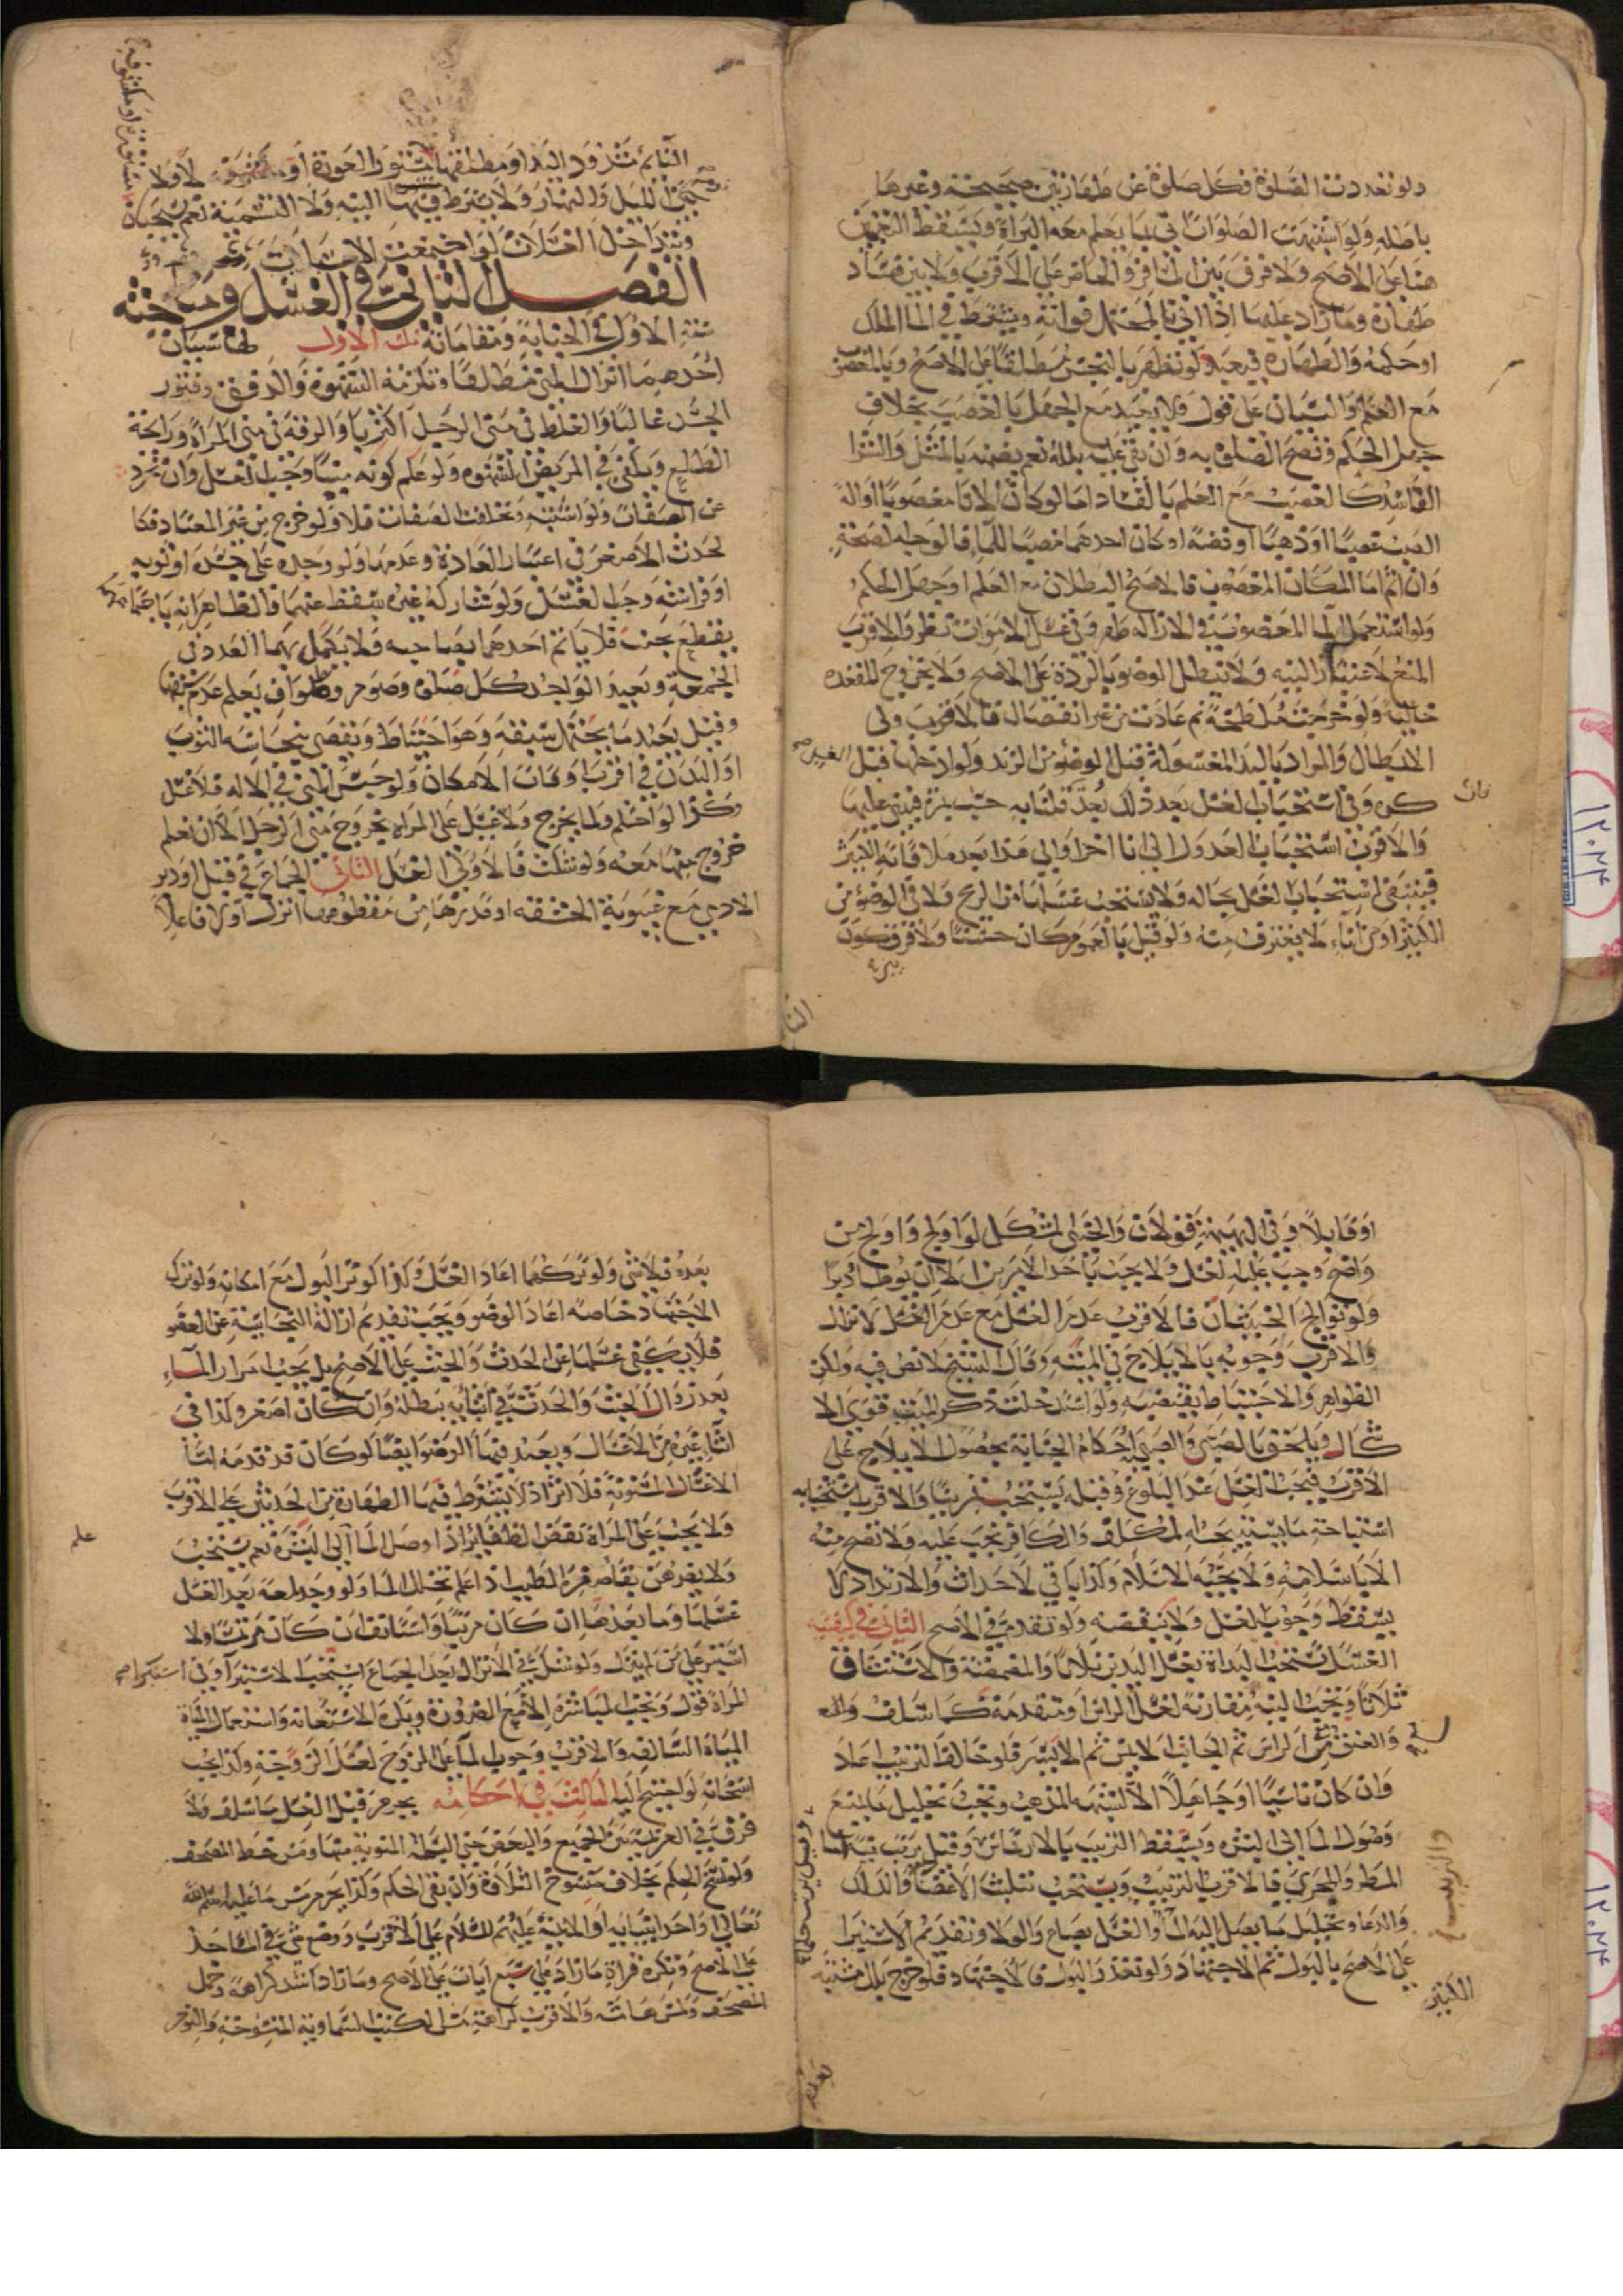 ولو تعددت الصلوة فكل صلوة عن طهارتين صحيحة وغيرها
باطله ولو اشتبهت الصلوات اتى بما يعلم معه البراة ويسقط التعيين
هنا على الاصح ولا فرق بين المسافر والحاضر على الاقرب ولا بين فساد
طهارة وما زاد عليها اذا اتى بالمحتمل فواته ويشترط في الماء الملك
او حكمه والطهارة فيعيد لو تطهر بالنجس مطلقا على الاصح وبالمغصوب
مع العلم والنسيان على قول ولا يعيد مع الجهل بالغصب بخلاف
جهل الحكم وتصح الصلوة به وان بقي عليه بلله نعم يضمنه بالمثل والشرا
الفاسد كالغصب مع العلم بالفساد اما لو كان الانا مغصوبا او الة
الصب غصبا او ذهبا او فضة او كان احدهما مصبا للماء فالوجه الصحة
وان اثم اما المكان المغصوب فالاصح البطلان مع العلم او جهل الحكم
ولو استعمل الماء المغصوب في الازالة طهر وفي غسل الاموات نظر والاقرب
المنع لاعتبار النية ولا تبطل الوضو بالردة على الاصح ولا بخروج المقعده
خالية ولو خرجت ملطخة ثم عادت من غير انفصال فالاقرب
الابطال والمراد باليد المغسولة قبل الوضوء من الزند ولو ادخلها قبل الغسل
كره وفي استحباب الغسل بعد ذلك
والاقرب استحباب العدول الى انا اخر او الى هذا بعد ملاقاته الكثير
فينبغي استحباب الغسل بحاله ولا يستحب غسلها من الريح ولا في الوضوء من
الكثير او من اناء لا يغترف منه ولو قيل بالعموم كان حسنا ولا فرق كون
النائم مشدود اليد او مطلقها مستور العورة او لا ولا
بين الليل والنهار ولا يشترط فيها النية ولا التسمية نعم يستحبان
ويتداخل الغسلات لو اجتمعت الاسباب
الفصل الثاني في الغسل ومباحثه
ستة الاول في الجنابة ومقاماته الاول لها سببان
احدهما انزال المني مطلقا وتلزمه الشهوة والدفق وفتور
الجسد غالبا والغلظ في مني الرجل اكثريا والرقة في مني المراة ورايحة
الطلع ويكفي في المريض الشهوه ولو علم كونه منيا وجب الغسل وان تجرد
عن الصفات ولو اشتبه وتخلفت الصفات فلا ولو خرج من غير المعتاد فكا
لحدث الاصغر في اعتبار العادة وعدمها ولو وجده على جسده او ثوبه
او فراشه وجب الغسل ولو شاركه غيره سقط عنهما
بقطع بجنب فلا ياتم احدهما بصاحبه ولا يكمل بهما العدد في
الجمعة ويعيد الواجد كل صلوة وصوم وطواف يعلم عدم سبقها
وقيل يعيد ما يحتمل سبقه وهو احتياط ويقضي بنجاسة الثوب
او البدن في اقرب اوقات الامكان ولو حبس المني في الالة فلا غسل
وكذا لو احتلم ولما يخرج ولا غسل على المراة بخروج مني الرجل الا ان تعلم
خروج منيها معه ولو شكت فالاولى الغسل الثاني الجماع في قبل او دبر
الادمي مع غيبوبة الحشفه او قدرها من مقطوعها انزل او لا فاعلا
او قابلا وفي البهيمة قولان والخنثى المشكل لو اولج واولج من
واضح وجب عليه الغسل ولا يجب باحد الامرين الا ان يوطا دبرا
ولو توالج الخنثيان فالاقرب عدم الغسل مع عدم الانزال
والاقرب وجوبه بالايلاج في الميتة وقال الشيخ لا نص فيه ولكن
الظواهر والاحتياط يقتضيه ولو استدخلت ذكر الميت قوى الا
شكال ويلحق بالصبي والصبية احكام الجنابة بحصول الايلاج على
الاقرب فيجب الغسل عند البلوغ وقبله يستحب تمرينا والاقرب استحبابه
استباحة ما يستبيحه المكلف والكافر يجب عليه ولا تصح منه
الا باسلامه ولا يجبه الاسلام وكذا باقي الاحداث والارتداد لا
يسقط وجوب الغسل ولا ينقضه ولو تقدم في الاصح الثاني في كيفيته
الغسل تستحب البداة بغسل اليدين ثلاثا والمضمضة والاستنشاق
ثلاثا وتجب النية مقارنة لغسل الراس او متقدمة كما سلف
والعنق من الراس ثم الجانب الايمن ثم الايسر فلو خالف الترتيب اعاد
وان كان ناسيا او جاهلا ويجب تخليل ما يمنع
وصول الماء الى البشرة ويسقط الترتيب بالارتماس وقيل يرتب
المطر والمجرى فالاقرب الترتيب ويستحب تثليث الاعضاء والدلك
والدعاء وتخليل ما يصل اليه الماء والغسل بصاع والولا وتقديم الاستبرا
على الاصح بالبول ثم الاجتهاد ولو تعذر البول فالاجتهاد فلو خرج بلل مشتبه
بعده فلا شي ولو تركهما اعاد الغسل وكذا لو ترك البول مع امكانه ولو ترك
الاجتهاد خاصة اعاد الوضو ويجب تقديم ازالة النجاسة عن العضو
فلا يكفي غسلها عن الحدث والخبث على الاصح بل يجب امرار الماء
بعد زوال الخبث والحدث في اثنائه يبطله وان كان اصغر وكذا في
اثنا غيره من الاغسال ويعيد فيها الوضوا ايضا لو كان قد قدمه اما
الاغسال المسنونة فلا اثر اذ لا يشترط فيها الطهارة من الحدثين على الاقرب
ولا يجب على المراة نقض الضفاير اذا وصل الماء الى البشرة نعم يستحب
غسلها وما بعدها ان كان مرتبا واستانف ان كان مرتمسا ولا
استبر على من لم ينزل ولو شك في الانزال بعد الجماع استحب الاستبرا وفي استبراء
المراة قول وتجب المباشرة الا مع الضرورة ويكره الاستعانة واستعمال
المياه السالفه والاقرب وجوب الماء على الزوج لغسل الزوجة وكذا يجب
اسخانه لو احتيج اليه الثالث في احكامه يحرم قبل الغسل ما سلف ولا
فرق في العزيمة بين الجميع والبعض حتى البسملة المنوية منها ومس خط المصحف
ولو نسخ الحكم بخلاف منسوخ التلاوة وان بقي الحكم وكذا يحرم مس ما عليه اسم الله
تعالى او احد انبيايه او الايمة عليهم السلام على الاقرب ووضع شي في المساجد
على الاصح وتكره قراة ما زاد على سبع ايات على الاصح وما زاد اشد كراهة وحمل
المصحف ولمس هامشه والاقرب كراهية مس الكتب السماوية المنسوخة والنوم